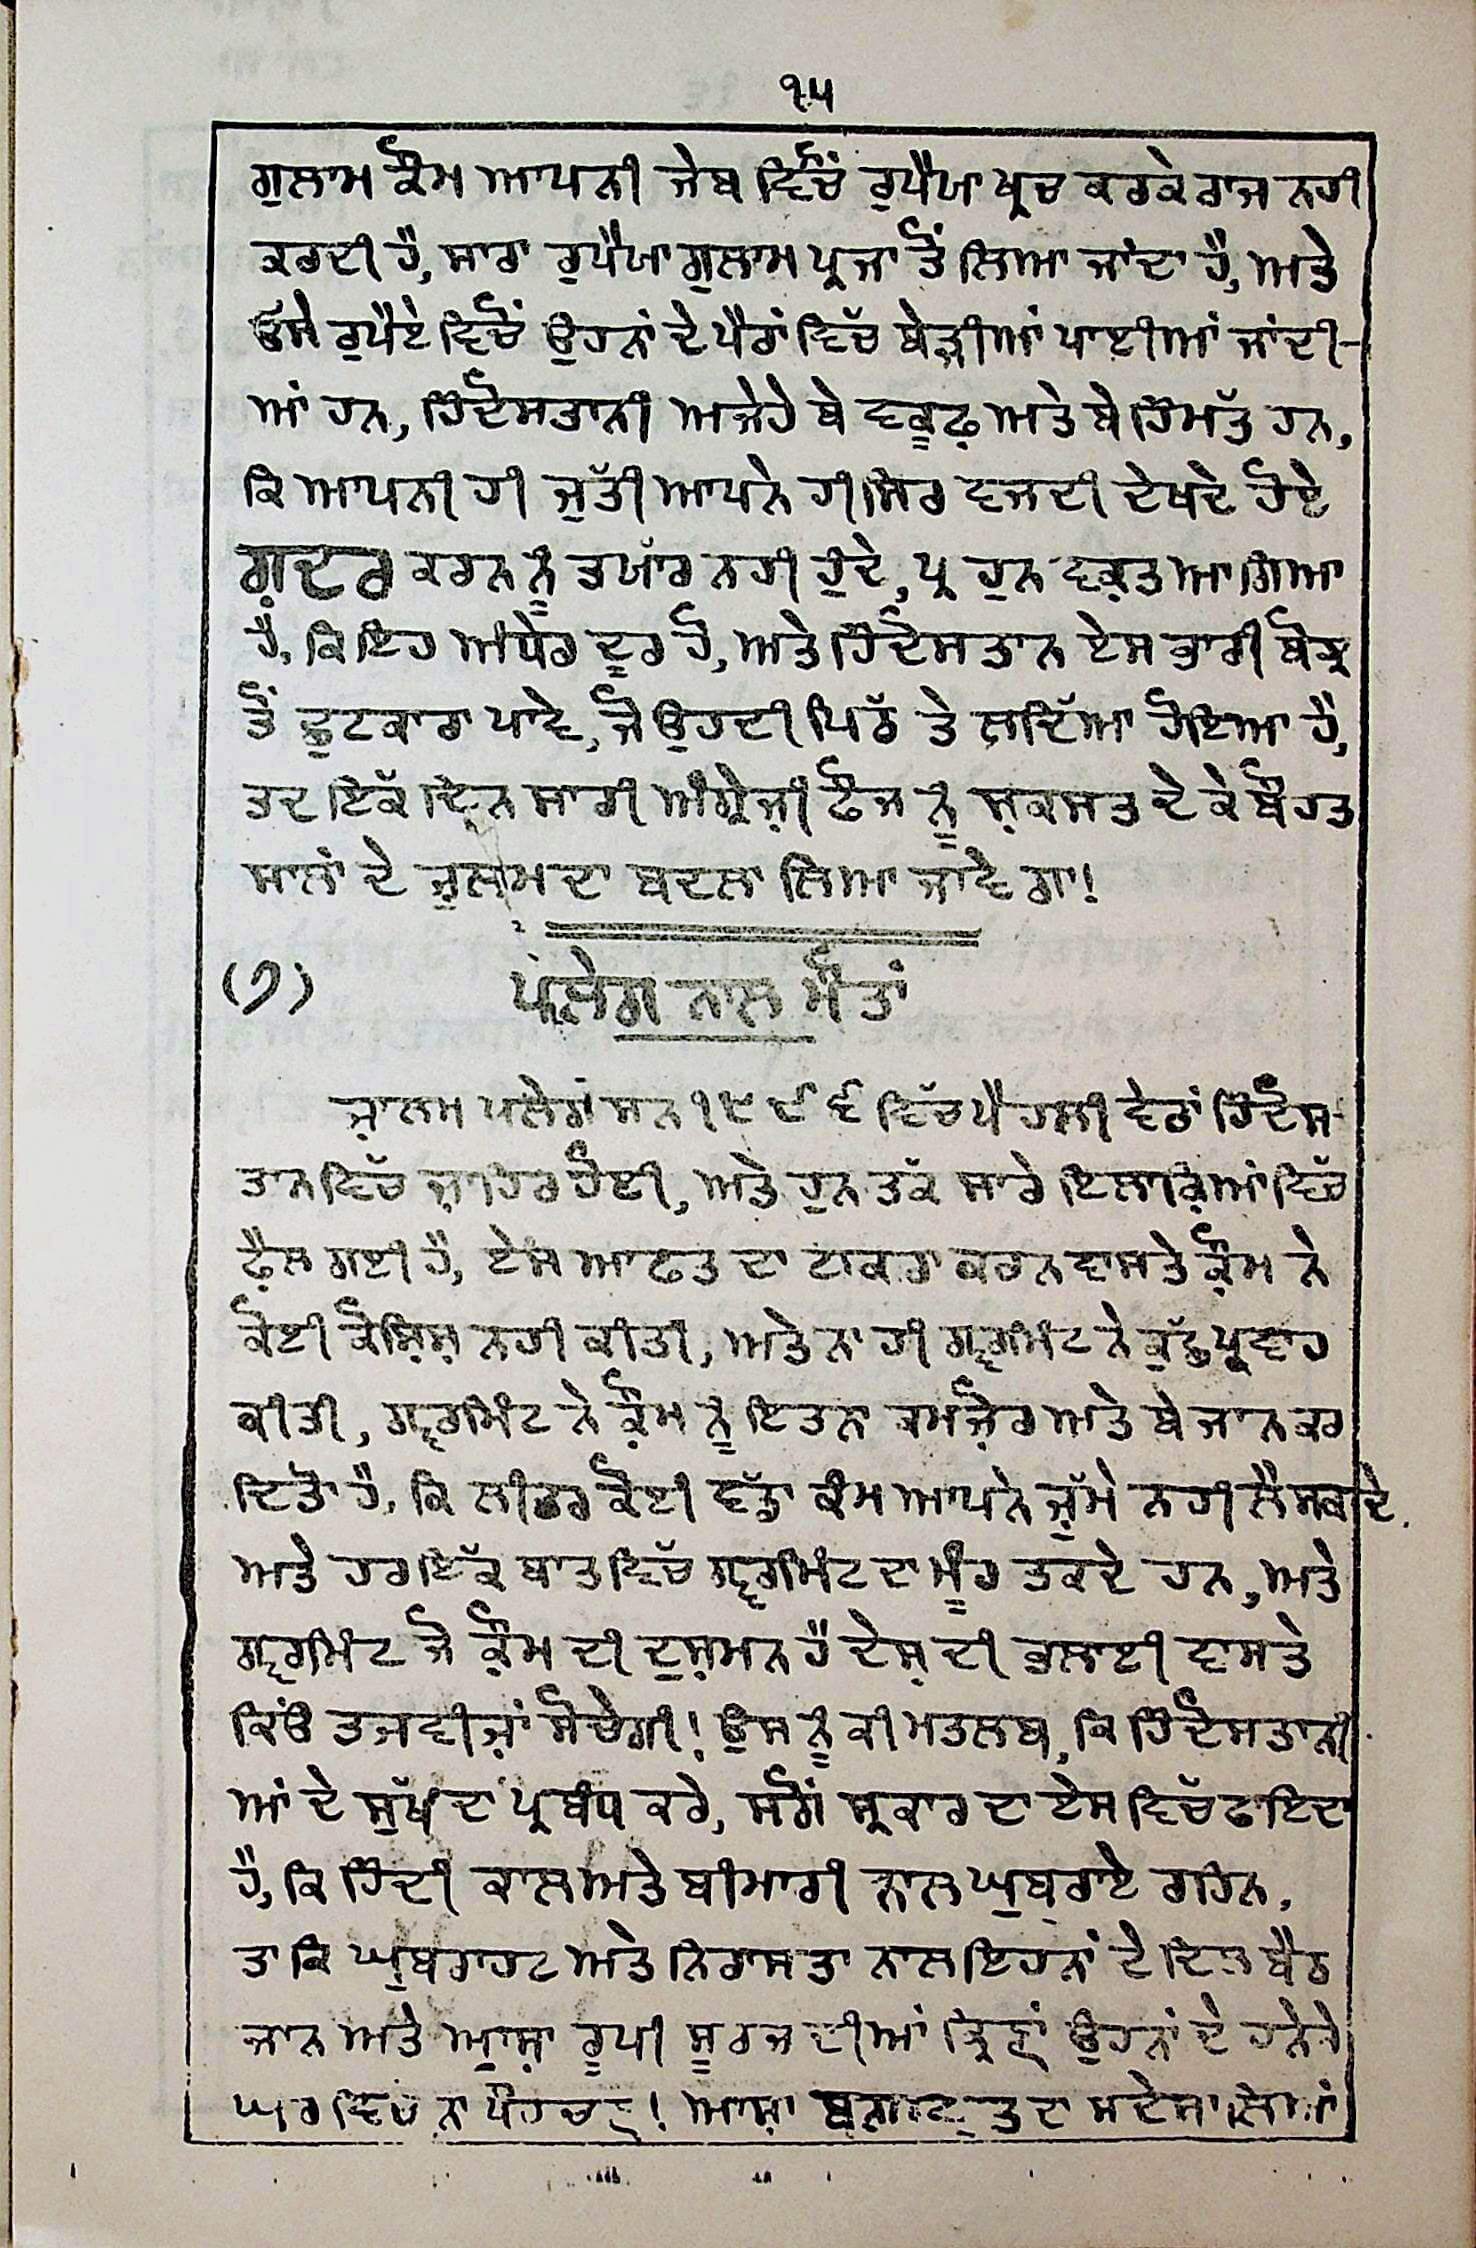 ੧੫
ਗੁਲਾਮ ਕੌਮ ਆਪਨੀ ਜੇਬ ਵਿੱਚੋਂ ਰੁਪੈਯਾ ਖ੍ਰਚ ਕਰਕੇ ਰਾਜ ਨਹੀ
ਕਰਦੀ ਹੈ, ਸਾਰਾ ਰੁਪੈਯਾ ਗੁਲਾਮ ਪ੍ਰਜਾ ਤੋਂ ਲਿਆ ਜਾਂਦਾ ਹੈ, ਅਤੇ
ਓਸੇ ਰੁਪੈਏ ਵਿਚੋਂ ਉਹਨਾਂ ਦੇ ਪੈਰਾਂ ਵਿੱਚ ਬੇੜੀਆਂ ਪਾਈਆਂ ਜਾਂਦੀ-
ਆਂ ਹਨ, ਹਿੰਦੋਸਤਾਨੀ ਅਜੇਹੇ ਬੇ ਵਕੂਫ਼ ਅਤੇ ਬੇ ਹਿੰਮਤ ਹਨ,
ਕਿ ਆਪਨੀ ਹੀ ਜੁੱਤੀ ਆਪਨੇ ਹੀ ਸਿਰ ਵਜਦੀ ਦੇਖਦੇ ਹੋਏ
ਗ਼ਦਰ ਕਰਨ ਨੂੰ ਤਯਾੱਰ ਨਹੀ ਹੁੰਦੇ, ਪ੍ਰ ਹੁਨ ਵਕ਼ਤ ਆ ਗਿਆ
ਹੈ, ਕਿ ਇਹ ਅੰਧੇਰ ਦੂਰ ਹੋ, ਅਤੇ ਹਿੰਦੋਸਤਾਨ ਏਸ ਭਾਰੀ ਬੋਝ
ਤੋਂ ਛੁਟਕਾਰਾ ਪਾਵੇ, ਜੋ ਉਹਦੀ ਪਿਠੱ ਤੇ ਲਦਿੱਆ ਹੋਇਆ ਹੈ,
ਤਦ ਇੱਕ ਦਿਨ ਸਾਰੀ ਅੰਗ੍ਰੇਜ਼ੀ ਫੌਜ ਨੂੰ ਸ਼ਕਸਤ ਦੇ ਕੇ ਬੌਹਤ
ਸਾਲਾਂ ਦੇ ਜ਼ੁਲਮ ਦਾ ਬਦਲਾ ਲਿਆ ਜਾਵੇ ਗਾ!
(੭) ਪਲੇਗ ਨਾਲ ਮੌਤਾਂ
ਜ਼ਾਲਮ ਪਲੇਗ ਸਨ ੧੮੯੬ ਵਿੱਚ ਪੈਹਲੀ ਵੇਰਾਂ ਹਿੰਦੋਸ-
ਤਾਨ ਵਿੱਚ ਜ਼ਾਹਿਰ ਹੋਈ, ਅਤੇ ਹੁਨ ਤੱਕ ਸਾਰੇ ਇਲਾਕ਼ਿਆਂ ਵਿੱਚ
ਫ਼ੈਲ ਗਈ ਹੈ, ਏਸ ਆਫਤ ਦਾ ਟਾਕਰਾ ਕਰਨ ਵਾਸਤੇ ਕ਼ੌਮ ਨੇ
ਕੋਈ ਕੋਸ਼ਿਸ਼ ਨਹੀ ਕੀਤੀ, ਅਤੇ ਨਾ ਹੀ ਗ੍ਵਰਮਿੰਟ ਨੇ ਕੁੱਛ ਪ੍ਰਵਾਹ
ਕੀਤੀ, ਗ੍ਵਰਮਿੰਟ ਨੇ ਕ਼ੌਮ ਨੂੰ ਇਤਨਾ ਕਮਜ਼ੋਰ ਅਤੇ ਬੇ ਜਾਨ ਕਰ
ਦਿਤਾ ਹੈ, ਕਿ ਲੀਡਰ ਕੋਈ ਵੱਡਾ ਕੰਮ ਆਪਨੇ ਜ਼ੁੱਮੇ ਨਹੀ ਲੈ ਸਕਦੇ.
ਅਤੇ ਹਰ ਇੱਕ ਬਾਤ ਵਿੱਚ ਗ੍ਵਰਮਿੰਟ ਦਾ ਮੂੰਹ ਤਕਦੇ ਹਨ, ਅਤੇ
ਗ੍ਵਰਮਿੰਟ ਜੋ ਕ਼ੌਮ ਦੀ ਦੁਸ਼ਮਨ ਹੈ ਦੇਸ਼ ਦੀ ਭਲਾਈ ਵਾਸਤੇ
ਕਿੰਉ ਤਜਵੀਜ਼ਾਂ ਸੋਚੇਗੀ! ਉਸ ਨੂੰ ਕੀ ਮਤਲਬ, ਕਿ ਹਿੰਦੋਸਤਾਨੀ
ਆਂ ਦੇ ਸੁੱਖ ਦਾ ਪ੍ਰਬੰਧ ਕਰੇ, ਸਗੋਂ ਸ੍ਰਕਾਰ ਦਾ ਏਸ ਵਿਚੱ ਫਾਇਦਾ
ਹੈ, ਕਿ ਹਿੰਦੀ ਕਾਲ ਅਤੇ ਬੀਮਾਰੀ ਨਾਲ ਘੁਬਰਾਏ ਰਹਿਨ,
ਤਾ ਕਿ ਘੁਬਰਾਹਟ ਅਤੇ ਨਿਰਾਸਤਾ ਨਾਲ ਇਹਨਾਂ ਦੇ ਦਿਲ ਬੈਠ
ਜਾਨ ਅਤੇ ਆਸ਼ਾ ਰੂਪੀ ਸੂਰਜ ਦੀਆਂ ਕ੍ਰਿਣਾਂ ਉਹਨਾਂ ਦੇ ਹਨੇਰੇ
ਘਰ ਵਿਚ ਨਾ ਪੌਹਚਨ! ਆਸ਼ਾ ਦਾ